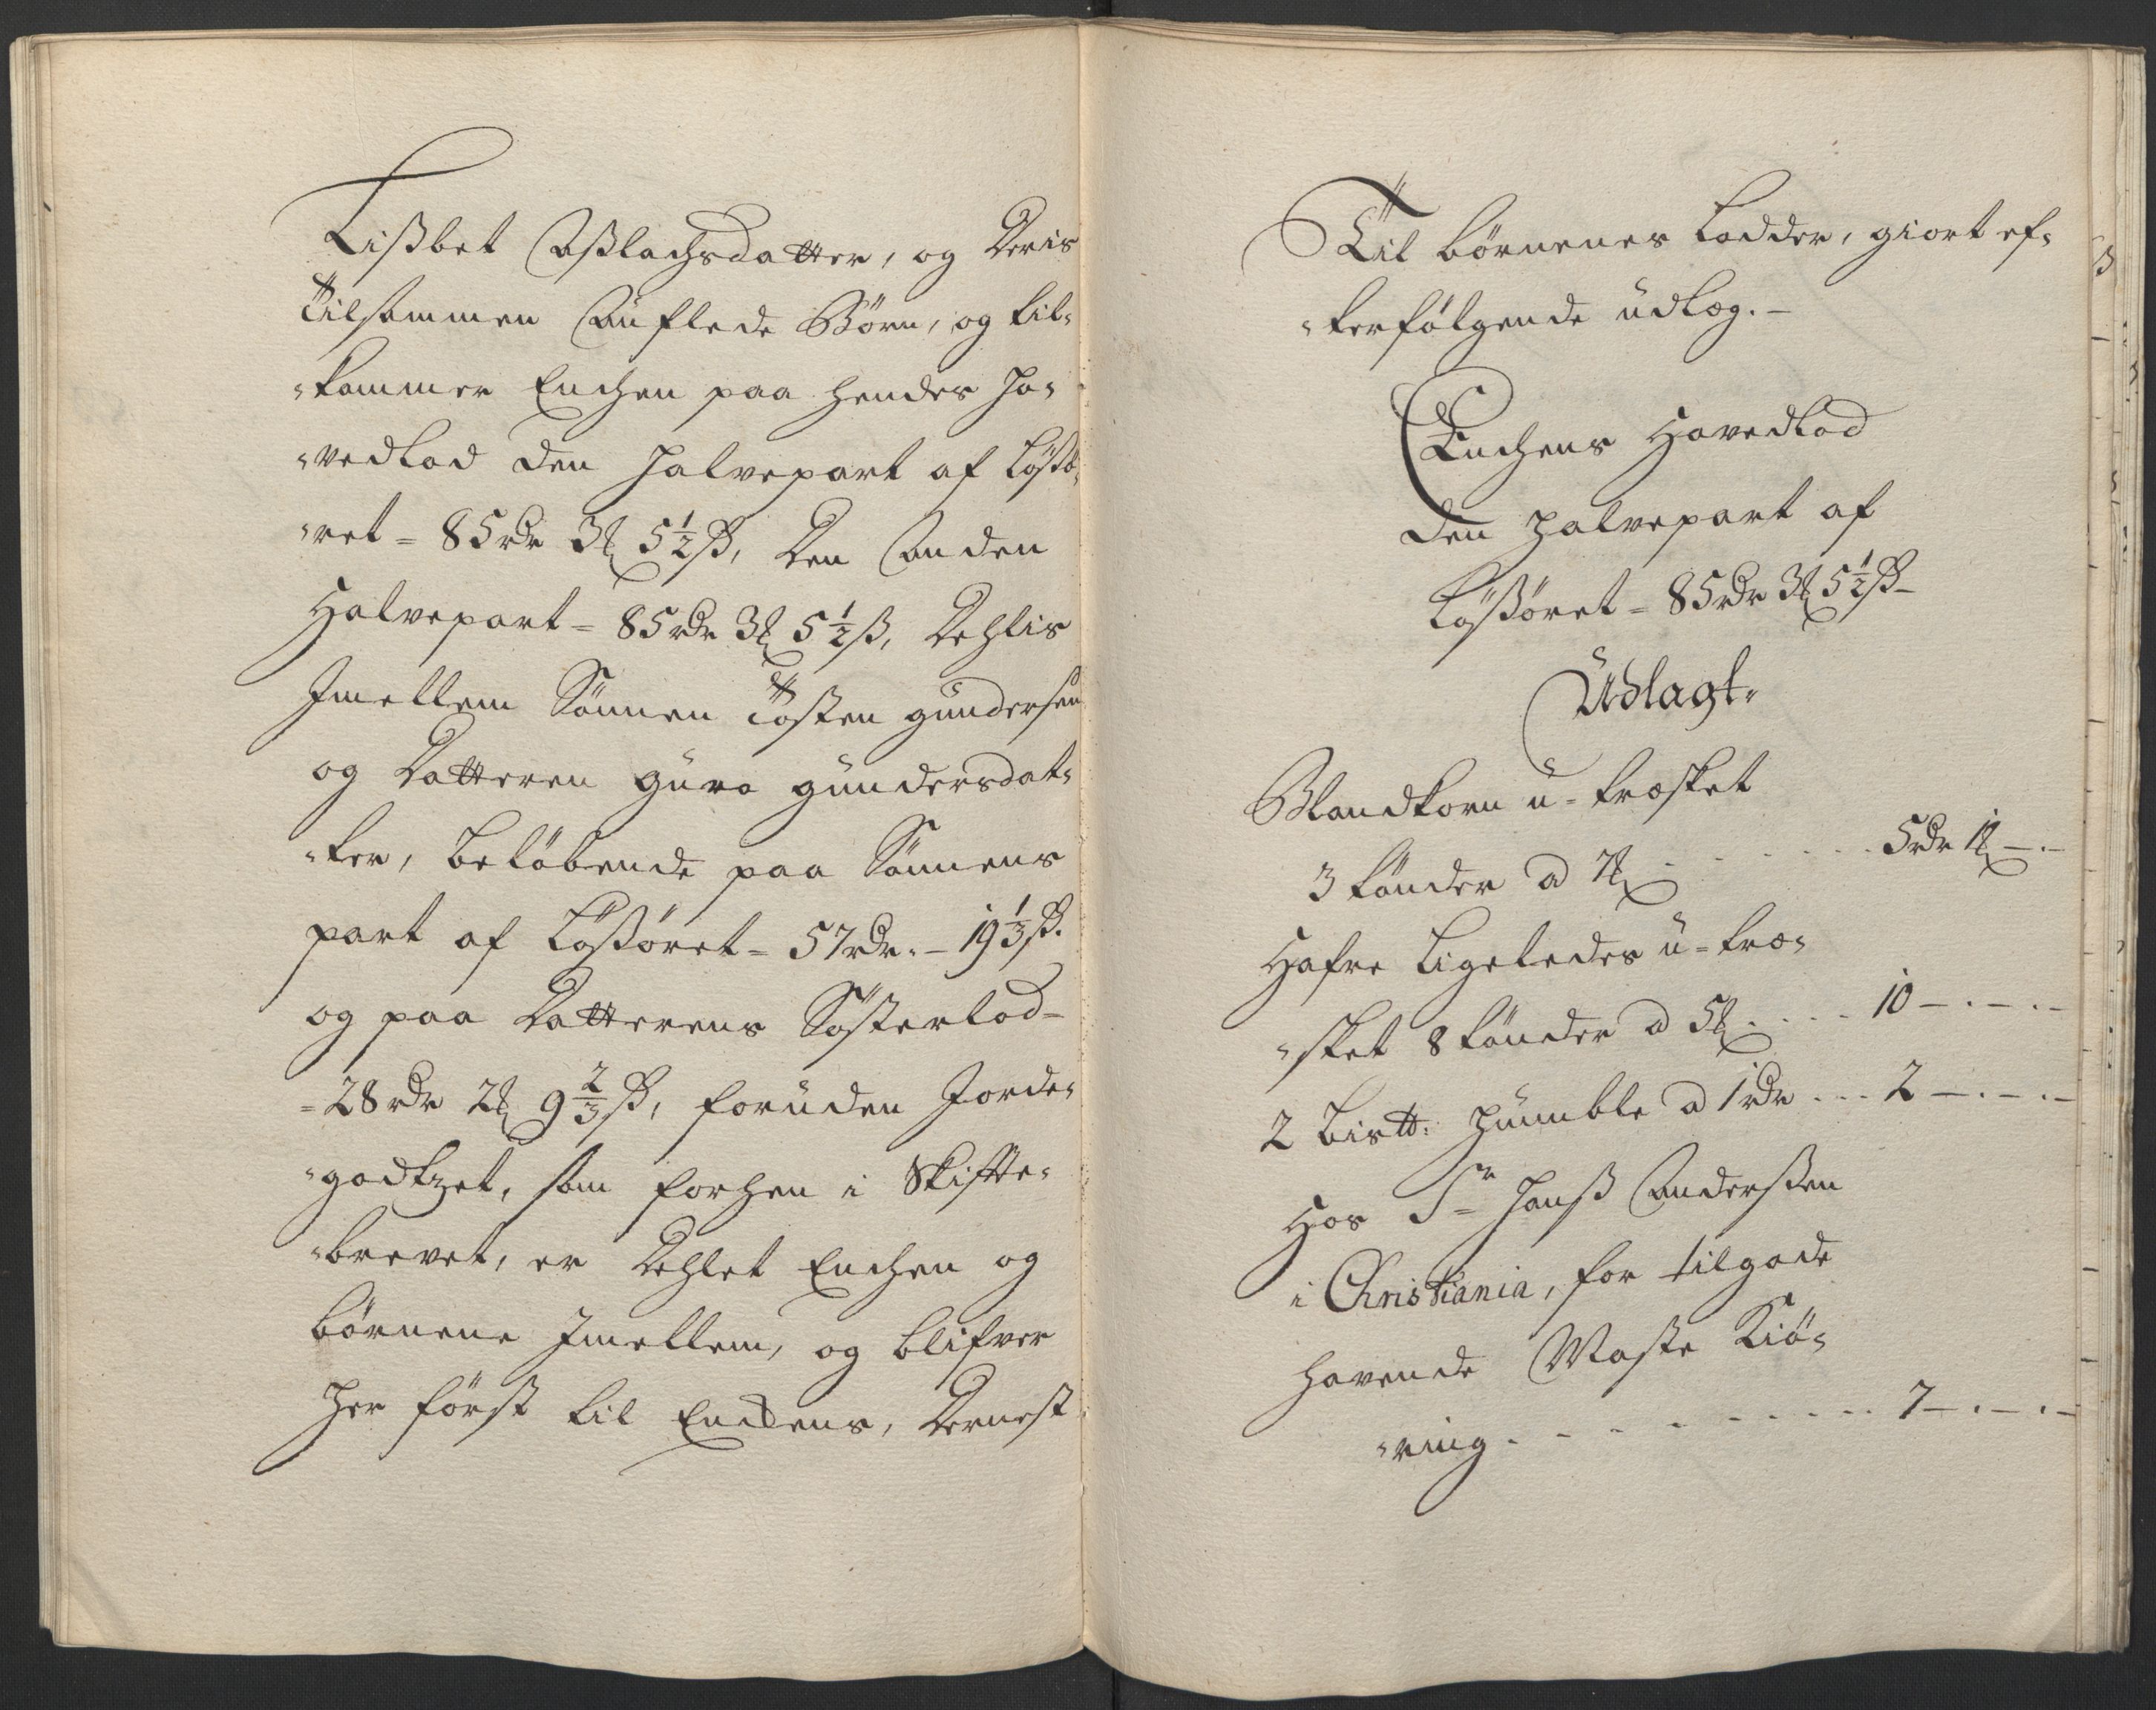 Lißbet Aßlachsdatter, og Deris
Tilsammen Auflede Börn, og til-
-kommer Enchen paa hendes Ho-
-vedlod den halvepart af Lößö-
-ret = 85 rdr 3 ort 5½ ß, Den Anden
Halvepart = 85 rdr 3 ort 5½ ß, Dehlis
Imellem Sönnen Tosten gundersen
og Datteren guro gundersdat-
-ter, beløbende paa Sönnens
part af Lößöret = 57 rdr. - 19⅓ ß.
og paa Datterens Sösterlod =
= 28 rdr 2 ort 9⅔ ß, foruden Jorde-
-godtzet, som forhen i Skifte-
-brevet, er Dehlet Enchen og
börnene Imellem, og blifver
her først til Enchens, Dernest
Til börnenes Lodder, giort ef-
-terfølgende udlæg. -
Enchens Hovedlod
den halvepart af
Lößöret = 85 rdr 3 ort 5½ ß -
Udlagt.
Blandkorn u-træsket
3 tönder a 7 ort . . . . . . 5 rdr 1 ort - . -
Hafre Ligeledes u-træ-
-sket 8 tönder a 5 ort . . . . 10 - . - . -
2 Bistt: humble a 1 rdr . . . 2 - . - . -
Hos Sr Hanß Anderßen
i Christiania, for tilgode
havende Maste Kiö-
-ring . . . . . . . . . 7 - . - . -